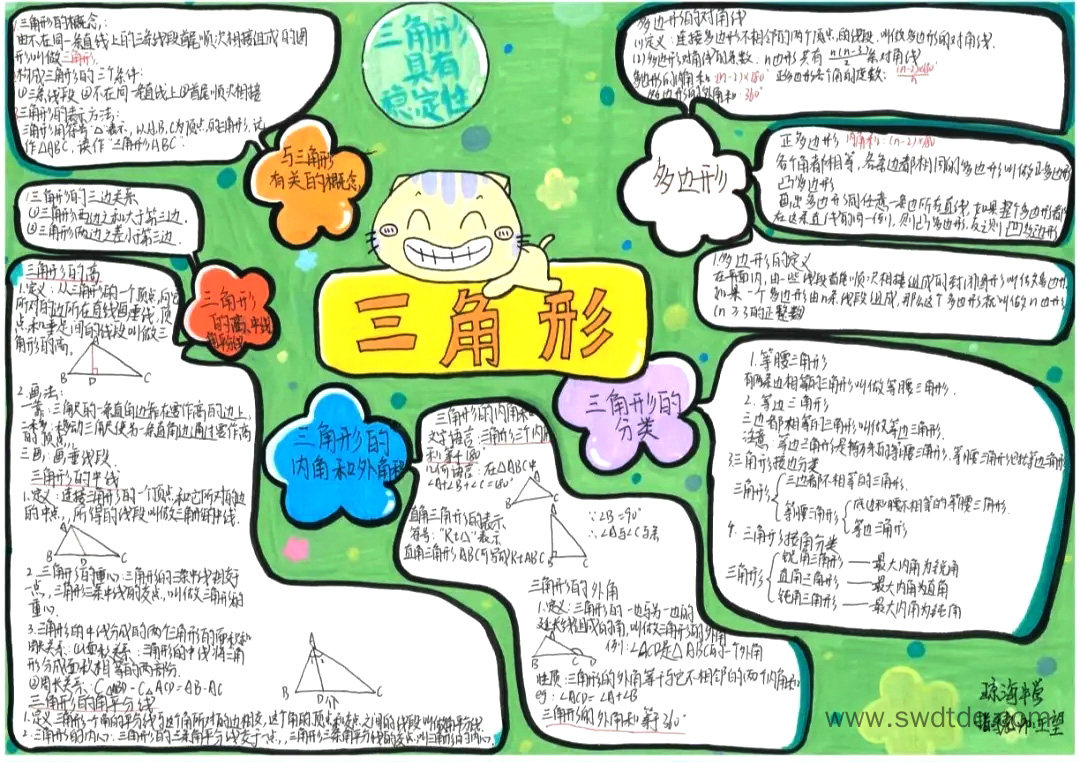 三角形具有
稳定性
三角形
与三角形
有关的概念
1.三角形的概念:
由不在同一条直线上的三条线段首尾顺次相接组成的图
形叫做三角形.
2.构成三角形的三个条件:
①三条线段 ②不在同一条直线上 ③首尾顺次相接
3.三角形的表示方法:
三角形用符号"△"表示,以A、B、C为顶点的三角形,记
作△ABC,读作"三角形ABC"
1.三角形的三边关系
①三角形两边之和大于第三边.
②三角形两边之差小于第三边.
三角形
的高、中线
三角形的高
1.定义:从三角形的一个顶点,向它
所对的边所在直线画垂线,顶
点和垂足间的线段叫做三
角形的高.
A
B D C
2.画法:
一靠:三角尺的一条直角边靠在要作高的边上,
二移:移动三角尺使另一条直角边通过要作高
的顶点,
三画:画垂线段.
三角形的中线
1.定义:连接三角形的一个顶点和它所对的边
的中点,所得的线段叫做三角形的中线.
A
B C
2.三角形的重心:三角形的三条中线相交于
一点,三角形三条中线的交点,叫做三角形的
重心.
3.三角形的中线分成的两个三角形的面积和
周长关系:①面积关系:三角形的中线将三角
形分成面积相等的两部分.
②周长关系:C△ABD-C△ACD=AB-AC
A
B D C
三角形的角平分线
1.定义:三角形一个角的平分线与这个角所对的边相交,这个角的顶点和交点之间的线段叫做角平分线
2.三角形的内心:三角形的三条角平分线交于一点,三角形三条角平分线的交点叫三角形的内心.
三角形的
内角和外角
三角形的内角和
文字语言:三角形三个内角
和等于180°
几何语言:在△ABC中
∠A+∠B+∠C=180°
A
B C
直角三角形的表示
符号:"Rt△"表示
直角三角形ABC可写成Rt△ABC
∵∠B=90°
三角形的外角
1.定义:三角形的一边与另一边的
延长线组成的角,叫做三角形的外角
例:∠ACD是△ABC的一个外角
A
B C D
性质:三角形的外角等于与它不相邻的两个内角和
即:∠ACD=∠A+∠B
三角形的外角和等于360°
三角形的
分类
1.等腰三角形
有两条边相等的三角形叫做等腰三角形.
2.等边三角形
三边都相等的三角形叫做等边三角形.
注意:等边三角形是特殊的等腰三角形,等腰三角形包括等边三角形
3.三角形按边分类
三角形 三边都不相等的三角形.
等腰三角形 底边和腰不相等的等腰三角形.
等边三角形
4.三角形按角分类
三角形 锐角三角形——最大内角为锐角
直角三角形——最大内角为直角
钝角三角形——最大内角为钝角
多边形
多边形的对角线
(1)定义:连接多边形不相邻的两个顶点的线段,叫做多边形的对角线.
(2)多边形对角线的条数:n边形共有n(n-3)/2条对角线
多边形的内角和:(n-2)×180° 正多边形各个角的度数:(n-2)×180°/n
多边形的外角和:360°
正多边形 内角和:(n-2)×180
各个角都相等,各条边都相同的多边形叫做正多边形
凸多边形
画出多边形的任意一条边所在直线,如果整个多边形都
在这条直线的同一侧,则凸多边形,反之则凹多边形
1.多边形的定义
在平面内,由一些线段首尾顺次相接组成的封闭图形叫做多边形
如果一个多边形由n条线段组成,那么这个多边形就叫做n边形
(n≥3的正整数)
www.swdtdq.com